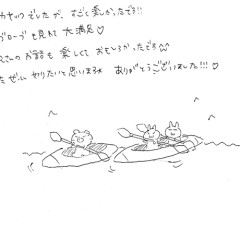 カヤックでしたが、すごく楽しかったです!!
グローブも見れて大満足♡
さんのお話も楽しくておもしろかったです
たぜひやりたいと思います☆ ありがとうございました!!!♡